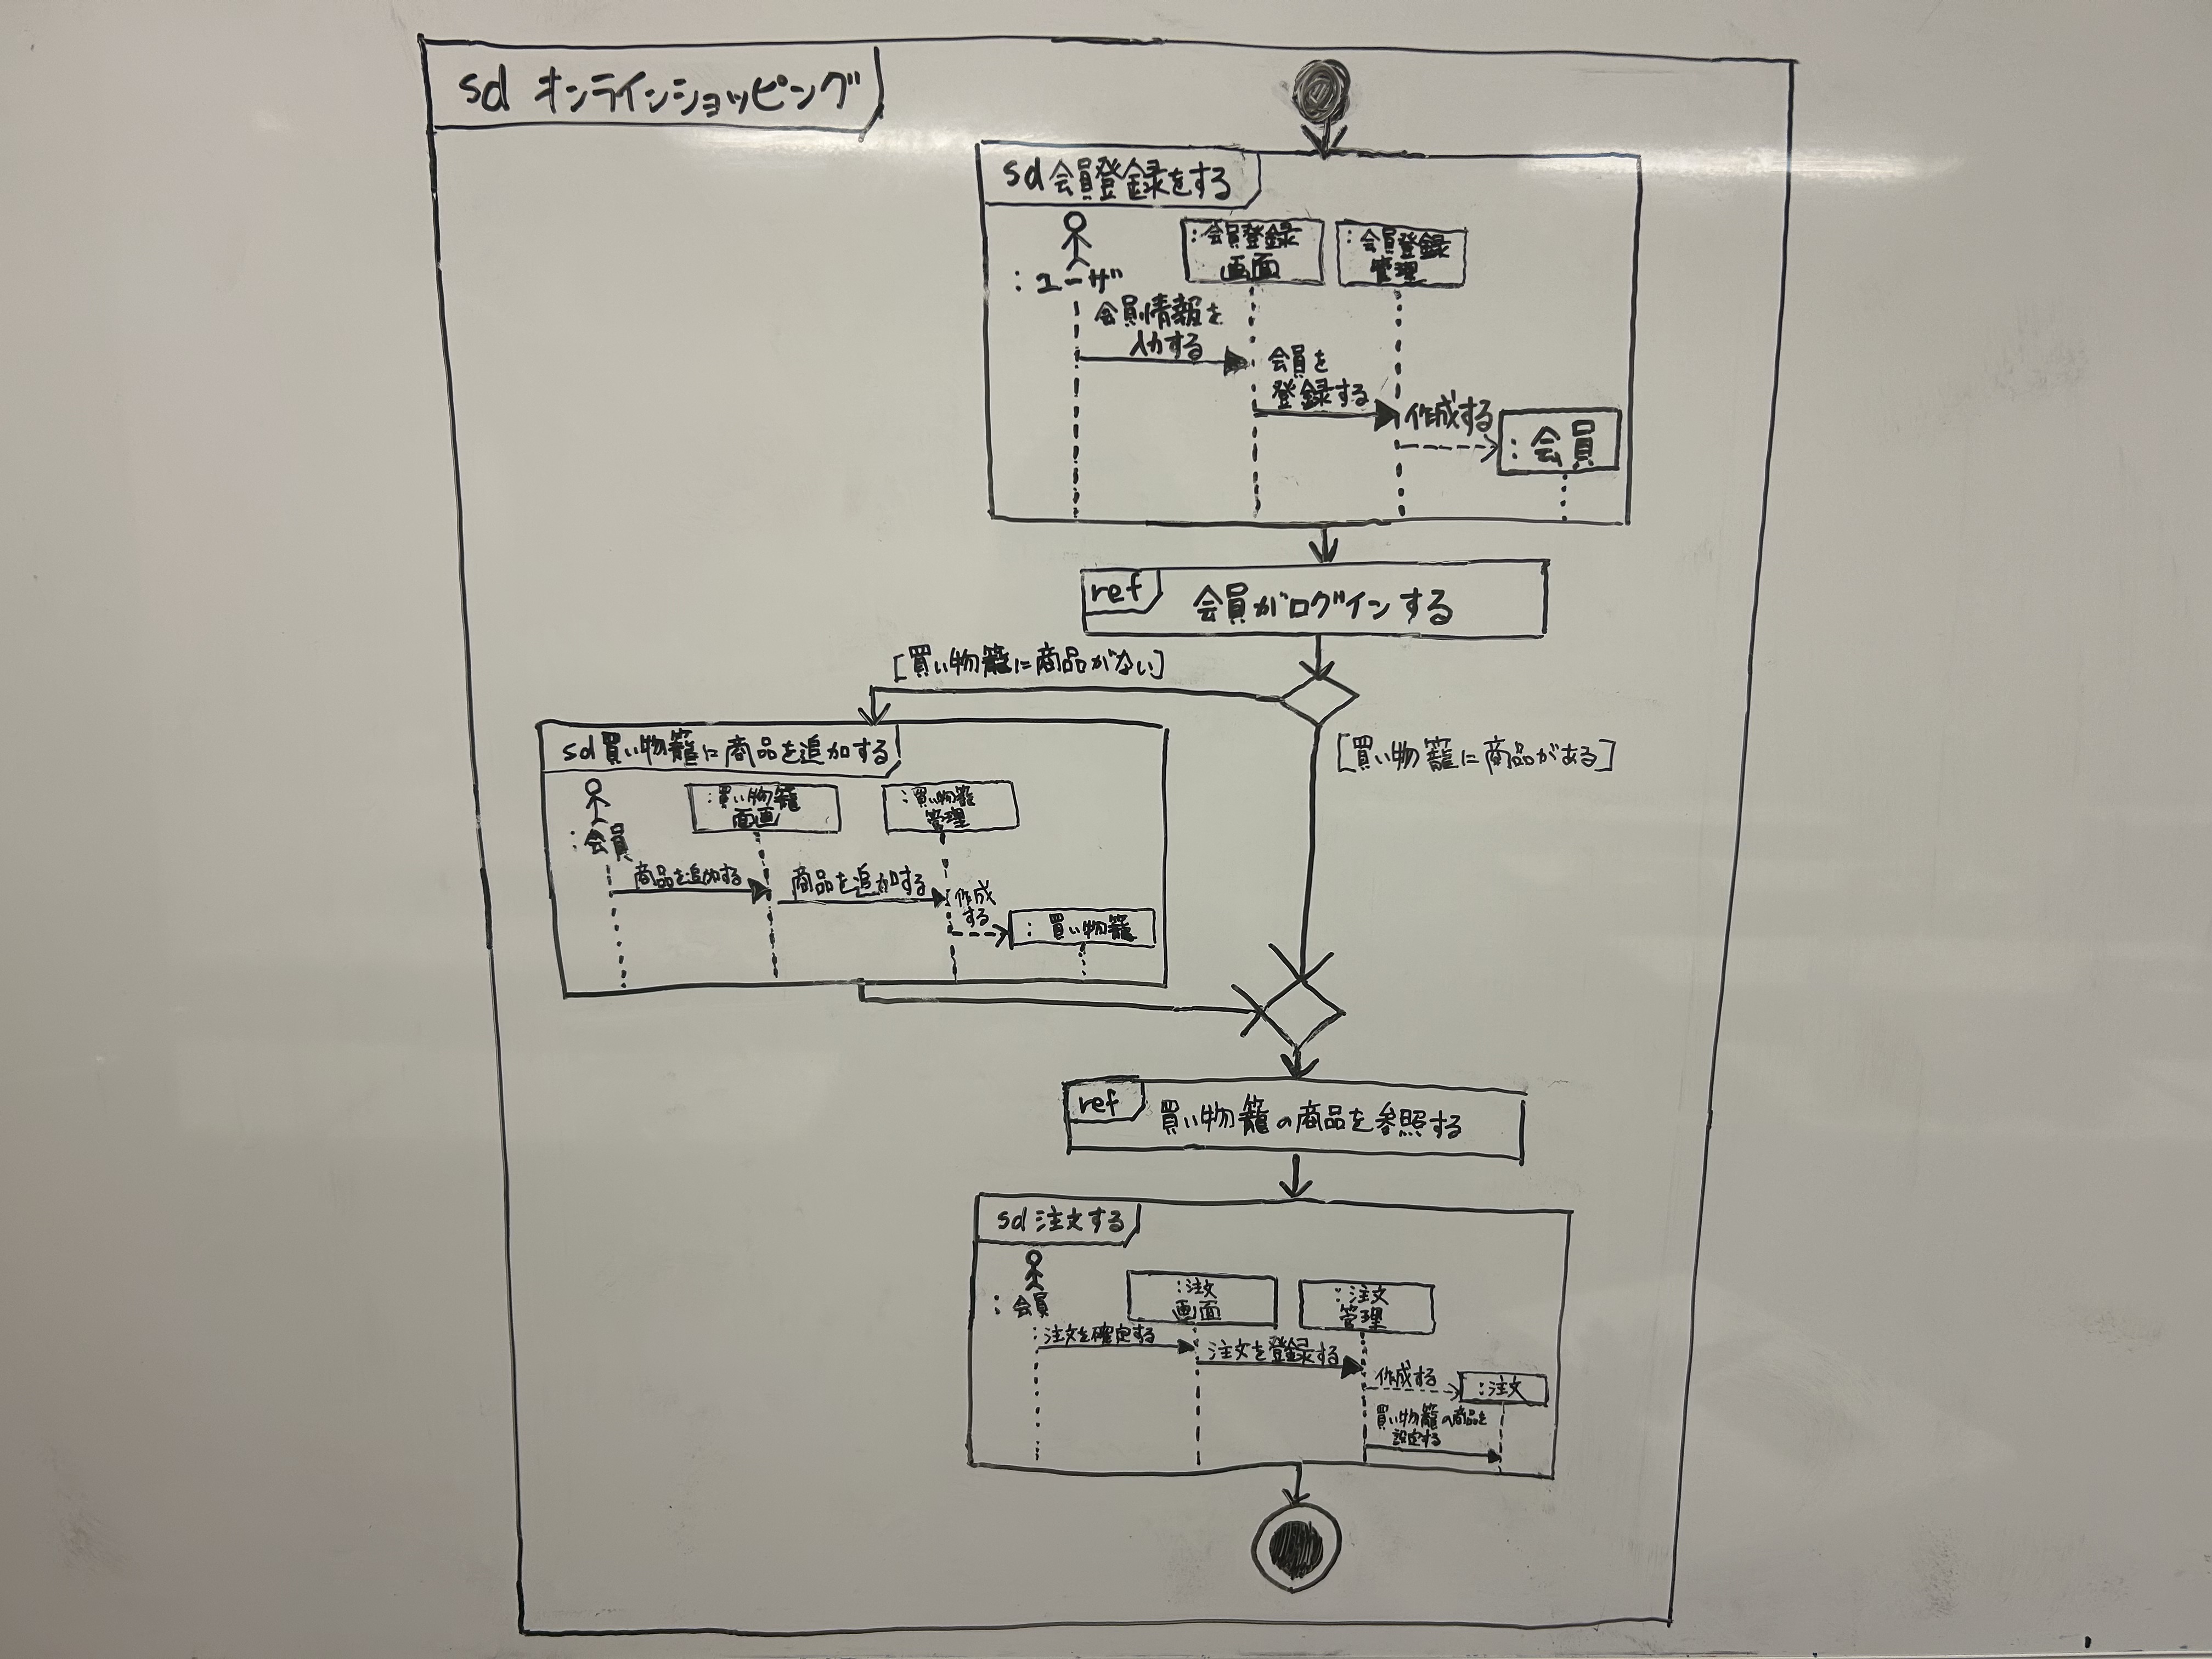 sd オンラインショッピング
sd 会員登録をする
:ユーザ
:会員登録
画面
:会員登録
管理
会員情報を
入力する
会員を
登録する
作成する
:会員
ref
会員がログインする
[買い物籠に商品がない]
[買い物籠に商品がある]
sd 買い物籠に商品を追加する
:会員
:買い物籠
面画
:買い物籠
管理
商品を追加する
商品を追加する
作成
する
:買い物籠
ref
買い物籠の商品を参照する
sd 注文する
:会員
:注文
画面
:注文
管理
注文を確定する
注文を登録する
作成する
:注文
買い物籠の商品を
設定する